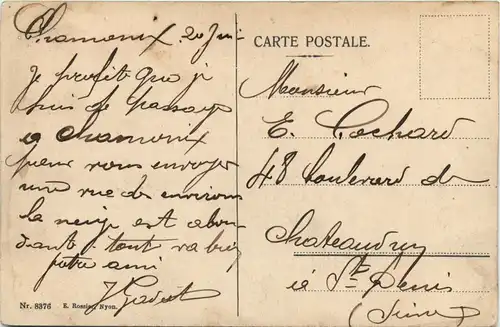 Chamonix 20 Jui
CARTE POSTALE.
Je profite que je
suis de passage
a Chamonix
pour vous envoyer
une vue des environs
la neige est abon
dante tout va bien
votre ami
Monsieur
E. Cochard
48 boulevard de
Chateaudun
St Denis
(Seine)
Nr. 8376 E. Rossier, Nyon.